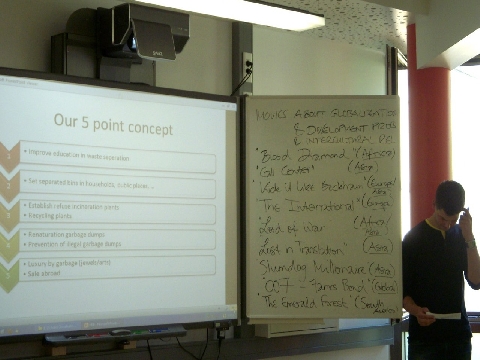 Our 5 point concept
Improve education in waste separation
Set separate bins in households, public places...
Establish refuse incineration plants
Recycling plants
Renaturation garbage dumps
Prevention of illegal garbage dumps
Luxury by garbage (jewels/arts)
MOVIES ABOUT GLOBALISATION
& DEVELOPMENT
& INTERCULTURAL REL.
"Blood Diamond" (Africa)
"Call Center" (Asia)
"Bend it like Beckham" (Europe/
Asia
"The International" (Europe
"Lord of War" (Africa/
Asia
"Lost in Translation" (Asia)
"Slumdog Millionaire (Asia)
007 - James Bond" (Global)
"The Emerald Forest" (South
America)